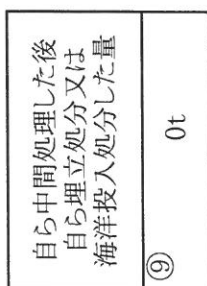 自ら中間処理した後
自ら埋立処分又は
海洋投入処分した量
⑨
0t